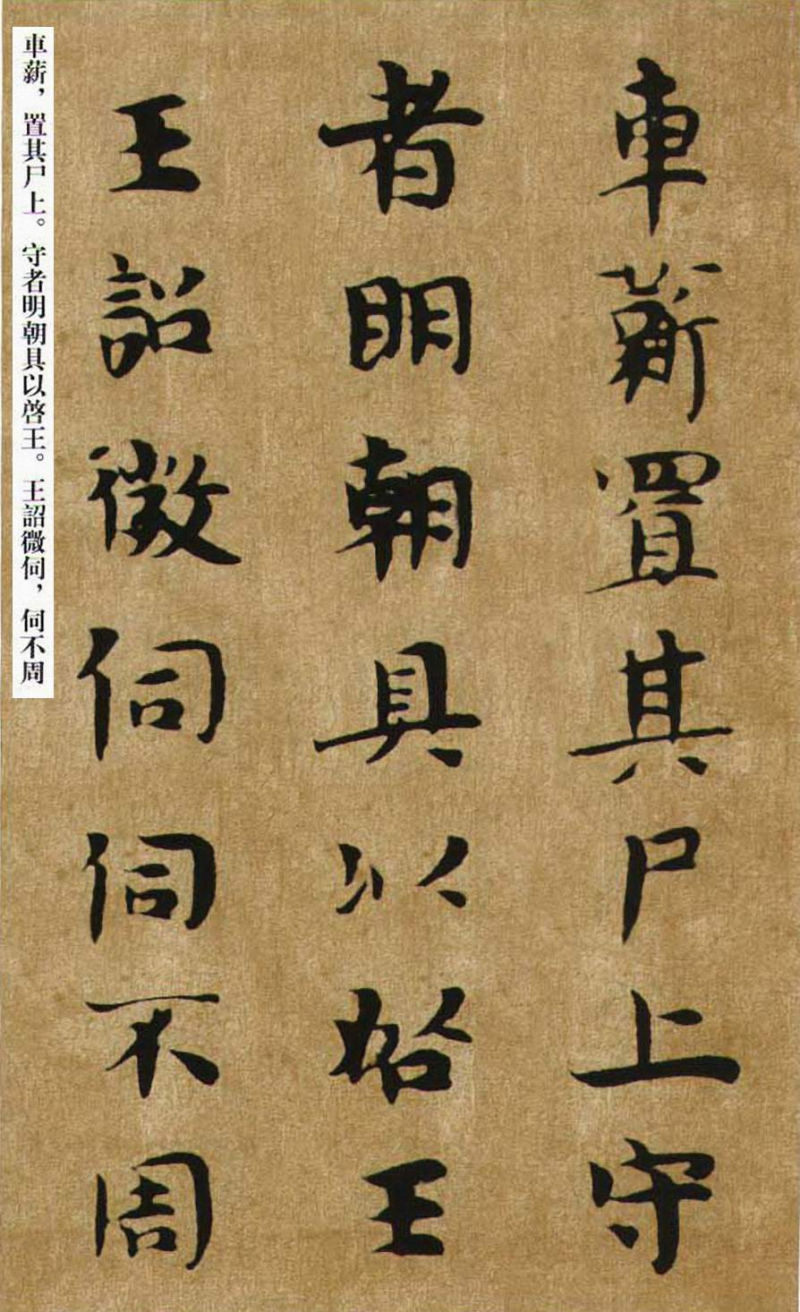 車薪置其尸上守
者明朝具以啓王
王詔微伺伺不周
車薪，置其尸上。守者明朝具以啓王。王詔微伺，伺不周